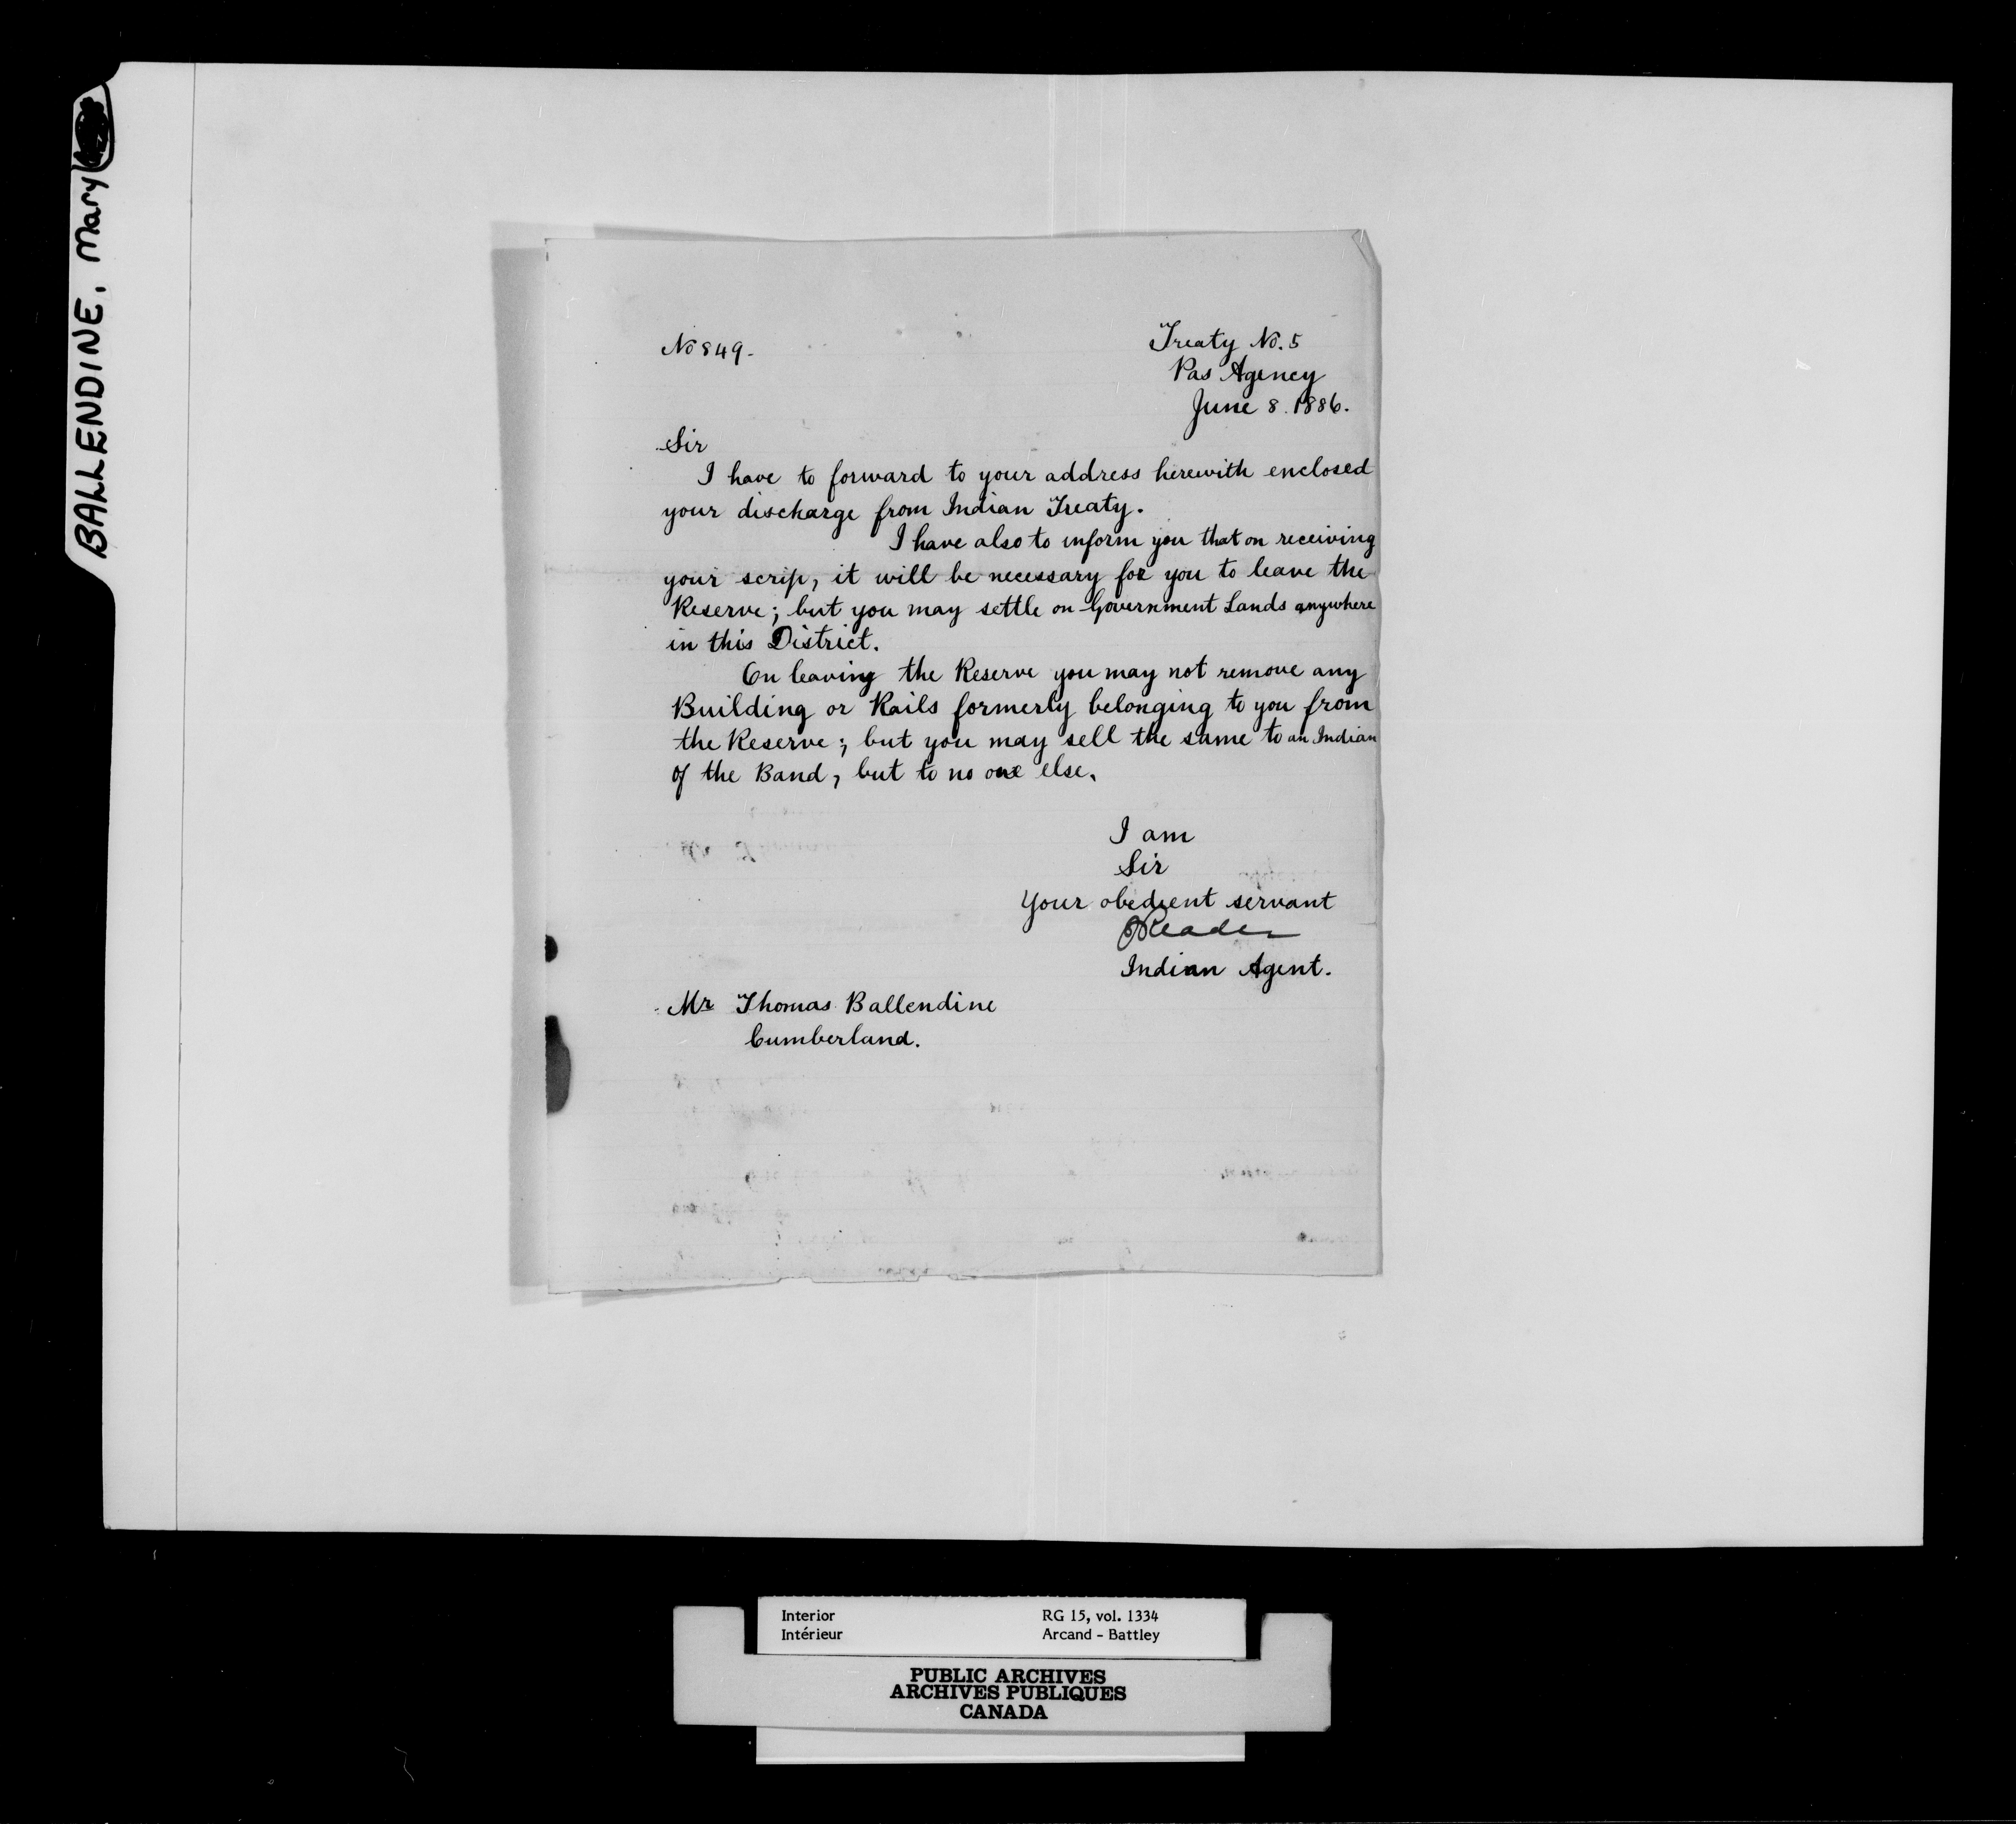 BALLENDINE, Mary
No 849.
Treaty No. 5
Pas Agency
June 8. 1886.
Sir
I have to forward to your address herewith enclosed
your discharge from Indian Treaty.
I have also to inform you that on receiving
your scrip, it will be necessary for you to leave the
Reserve; but you may settle on Government Lands anywhere
in this District.
On leaving the Reserve you may not remove any
Building or Rails formerly belonging to you from
the Reserve; but you may sell the same to an Indian
of the Band, but to no one else.
I am
Sir
Your obedient servant
Reader
Indian Agent.
Mr Thomas Ballendine
Cumberland.
Interior
Intérieur
RG 15, vol. 1334
Arcand - Battley
PUBLIC ARCHIVES
ARCHIVES PUBLIQUES
CANADA